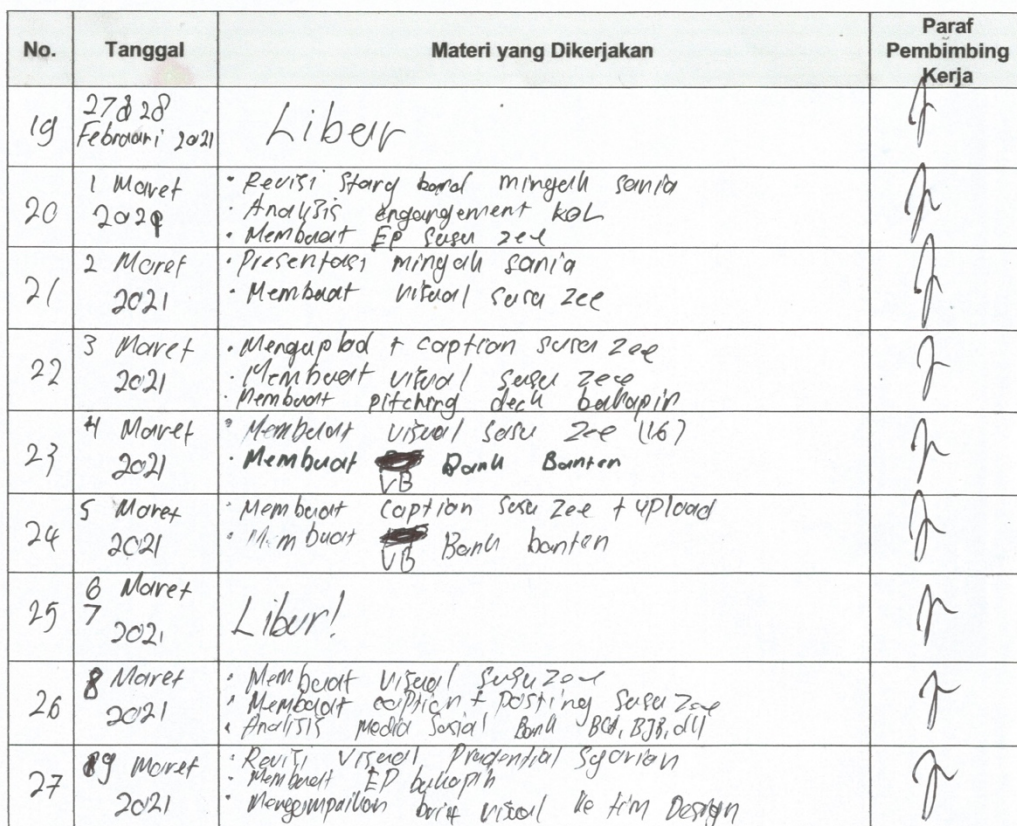 No. Tanggal Materi yang Dikerjakan Paraf Pembimbing Kerja
19 27 & 28 Februari 2021 Libur
20 1 Maret 2021
• Revisi Story board mingyak sania
• Analisis engangement KOL
• Membuat EP susu zee
21 2 Maret 2021
• Presentasi mingyak sania
• Membuat visual susu zee
22 3 Maret 2021
• Mengupload + caption susu zee
• Membuat visual susu zee
• Membuat pitching deck bakapin
23 4 Maret 2021
• Membuat visual susu zee (16)
• Membuat VB Bank Banten
24 5 Maret 2021
• Membuat caption susu zee + upload
• Membuat VB Bank banten
25 6 7 Maret 2021 Libur!
26 8 Maret 2021
• Membuat visual susu zee
• Membuat caption + posting susu zee
• Analisis media sosial Bank BCA, BJB, dll
27 9 Maret 2021
• Revisi visual Prudential Syariah
• Membuat EP bakapin
• Menyampaikan brief visual ke tim Design